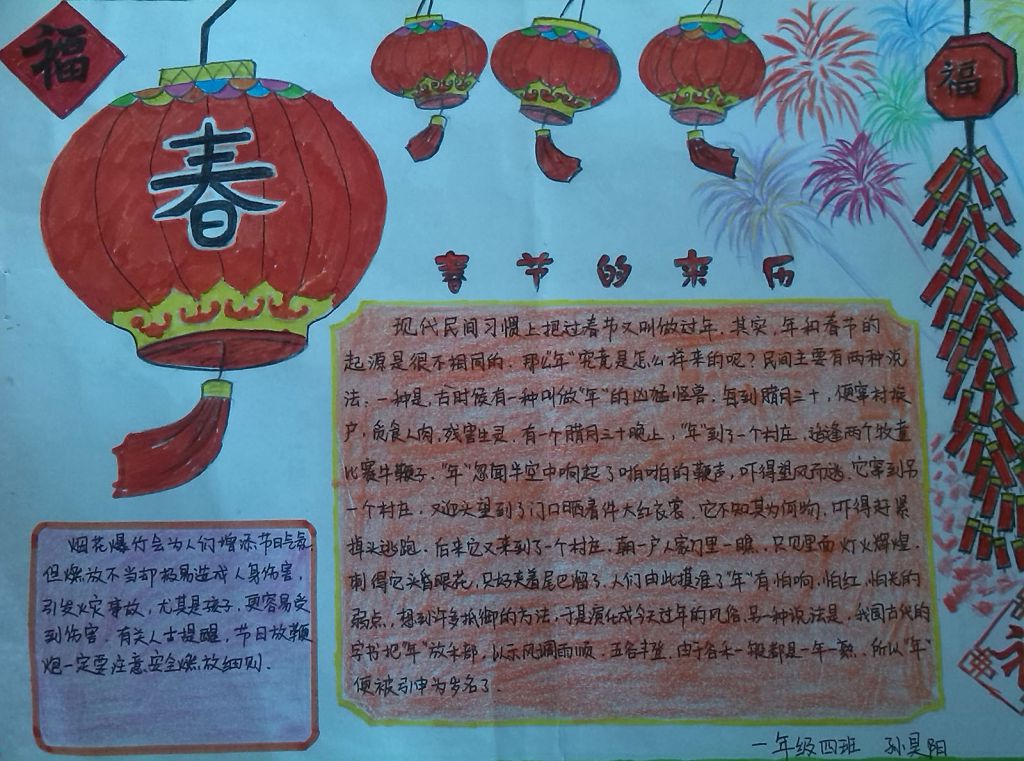 福
春
福
春节的来历
现代民间习惯上把过春节又叫做过年。其实，年和春节的
起源是很不相同的。那么“年”究竟是怎么样来的呢？民间主要有两种说
法：一种是，古时候有一种叫做“年”的凶猛怪兽，每到腊月三十，便窜村挨
户，觅食人肉，残害生灵。有一个腊月三十晚上，“年”到了一个村庄，适逢两个牧童
比赛牛鞭子。“年”忽闻半空中响起了啪啪的鞭声，吓得望风而逃。它窜到另
一个村庄，又迎头望到了门口晒着件大红衣裳，它不知其为何物，吓得赶紧
掉头逃跑。后来它又来到了一个村庄，朝一户人家门里一瞧，只见里面灯火辉煌，
刺得它头昏眼花，只好夹着尾巴溜了。人们由此摸准了“年”有怕响，怕红，怕光的
弱点，想到许多抵御的方法，于是演化成今天过年的风俗。另一种说法是，我国古代的
字书把“年”放禾部，以示风调雨顺，五谷丰登。由于谷禾一般都是一年一熟。所以“年”
便被引申为岁名了。
烟花爆竹会为人们增添节日气氛，
但燃放不当却极易造成人身伤害，
引发火灾事故，尤其是孩子，更容易受
到伤害。有关人士提醒，节日放鞭
炮一定要注意安全燃放细则。
一年级四班 孙昊阳